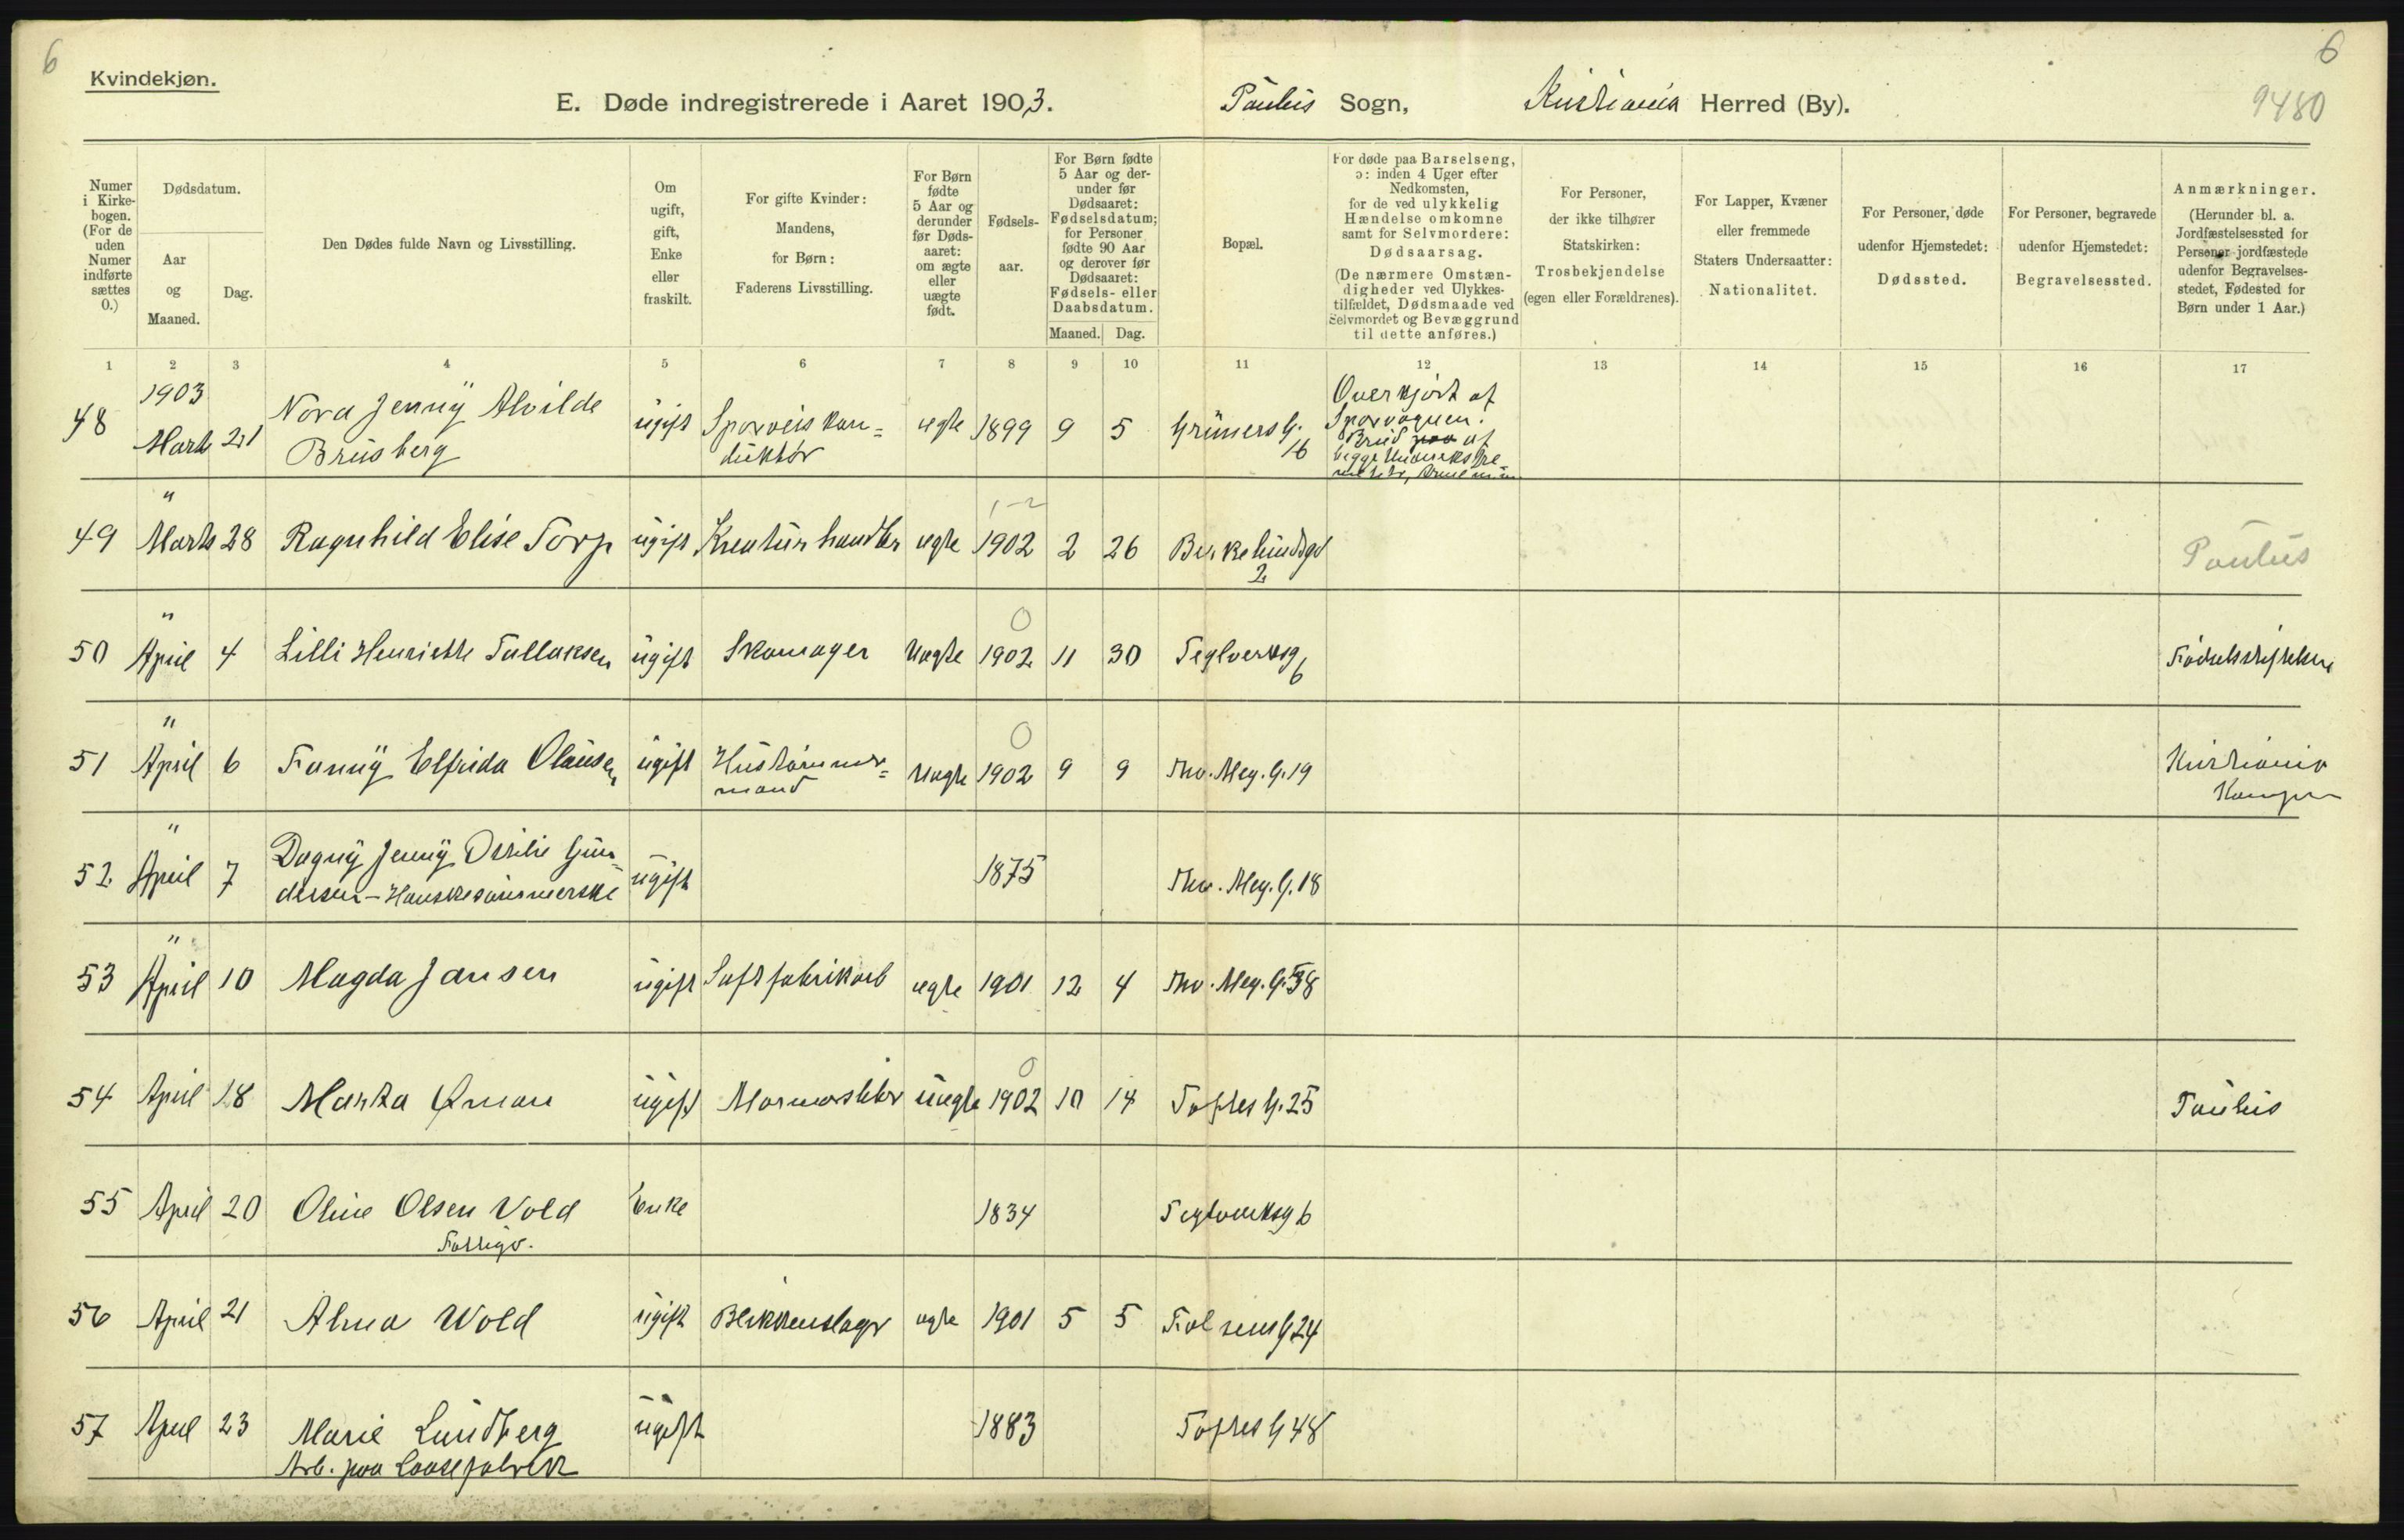 6
6
Kvindekjøn.
E. Døde indregistrerede i Aaret 1903. Paulus Sogn, Kristiania Herred (By).
9480
Numer i Kirkebogen. (For de uden Numer indførte sættes 0.)
Dødsdatum.
Aar og Maaned.
Dag.
Den Dødes fulde Navn og Livsstilling.
Om ugift, gift, Enke eller fraskilt.
For gifte Kvinder: Mandens, for Børn: Faderens Livsstilling.
For Børn fødte 5 Aar og derunder før Dødsaaret: om ægte eller uægte født.
Fødselsaar.
For Børn fødte 5 Aar og derunder før Dødsaaret: Fødselsdatum; for Personer fødte 90 Aar og derover før Dødsaaret: Fødsels- eller Daabsdatum.
Maaned. Dag.
Bopæl.
For døde paa Barselseng, ɔ: inden 4 Uger efter Nedkomsten, for de ved ulykkelig Hændelse omkomne samt for Selvmordere: Dødsaarsag. (De nærmere Omstændigheder ved Ulykkestilfældet, Dødsmaade ved Selvmordet og Bevæggrund til dette anføres.)
For Personer, der ikke tilhører Statskirken: Trosbekjendelse (egen eller Forældrenes).
For Lapper, Kvæner eller fremmede Staters Undersaatter: Nationalitet.
For Personer, døde udenfor Hjemstedet: Dødssted.
For Personer, begravede udenfor Hjemstedet: Begravelsessted.
Anmærkninger. (Herunder bl. a. Jordfæstelsessted for Personer jordfæstede udenfor Begravelsesstedet, Fødested for Børn under 1 Aar.)
1 2 3 4 5 6 7 8 9 10 11 12 13 14 15 16 17
48 1903 Marts 21 Nora Jenny Alvilde Brusberg ugift Sporveiskonduktør ægte 1899 9 5 Grüners G. 16 Overkjørt af Sporvognen. Brud paa af begge
49 " Marts 28 Ragnhild Elise Torp ugift Kreaturhandler ægte 1902 2 26 Birkelundsgd 2 Paulus
50 " April 4 Lilli Henriette Tallaksen ugift Skomager Uægte 1902 0 11 30 Teglverksg 6 Fødselsstiftelsen
51 " April 6 Fanny Elfrida Olausen ugift Hustømmermand Uægte 1902 0 9 9 Thv. Mey. G. 19 Kristiania Kampen
52 " April 7 Dagny Jenny Ottilie Gundersen - Hanskesømmerske ugift 1875 Thv. Mey. G. 18
53 " April 10 Magda Jansen ugift Saftfabrikarb ægte 1901 12 4 Thv. Mey. G. 38
54 April 18 Marka Øman ugift Marmorsliber uægte 1902 0 10 14 Toftes G. 25 Paulus
55 April 20 Oline Olsen Vold Fattigv. Enke 1834 Teglverksg 6
56 April 21 Alma Wold ugift Blikkenslager ægte 1901 5 5 Falsens G 24
57 April 23 Marie Lundberg Arb. paa Laasefabrik ugift 1883 Toftes G 48